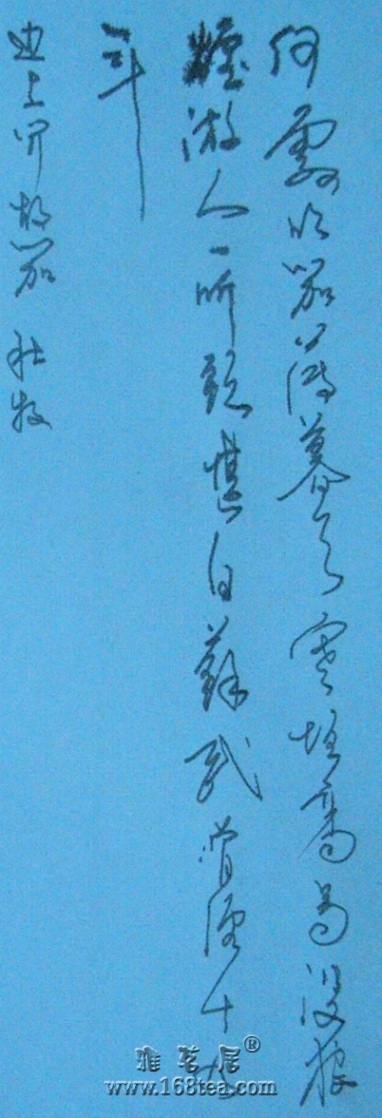 何處吹笳薄暮天寒垣高鳥沒狼
煙游人一听頭堪白蘇武曾經十九
年
边上闻胡笳 杜牧
雅茗居®
www.168tea.com